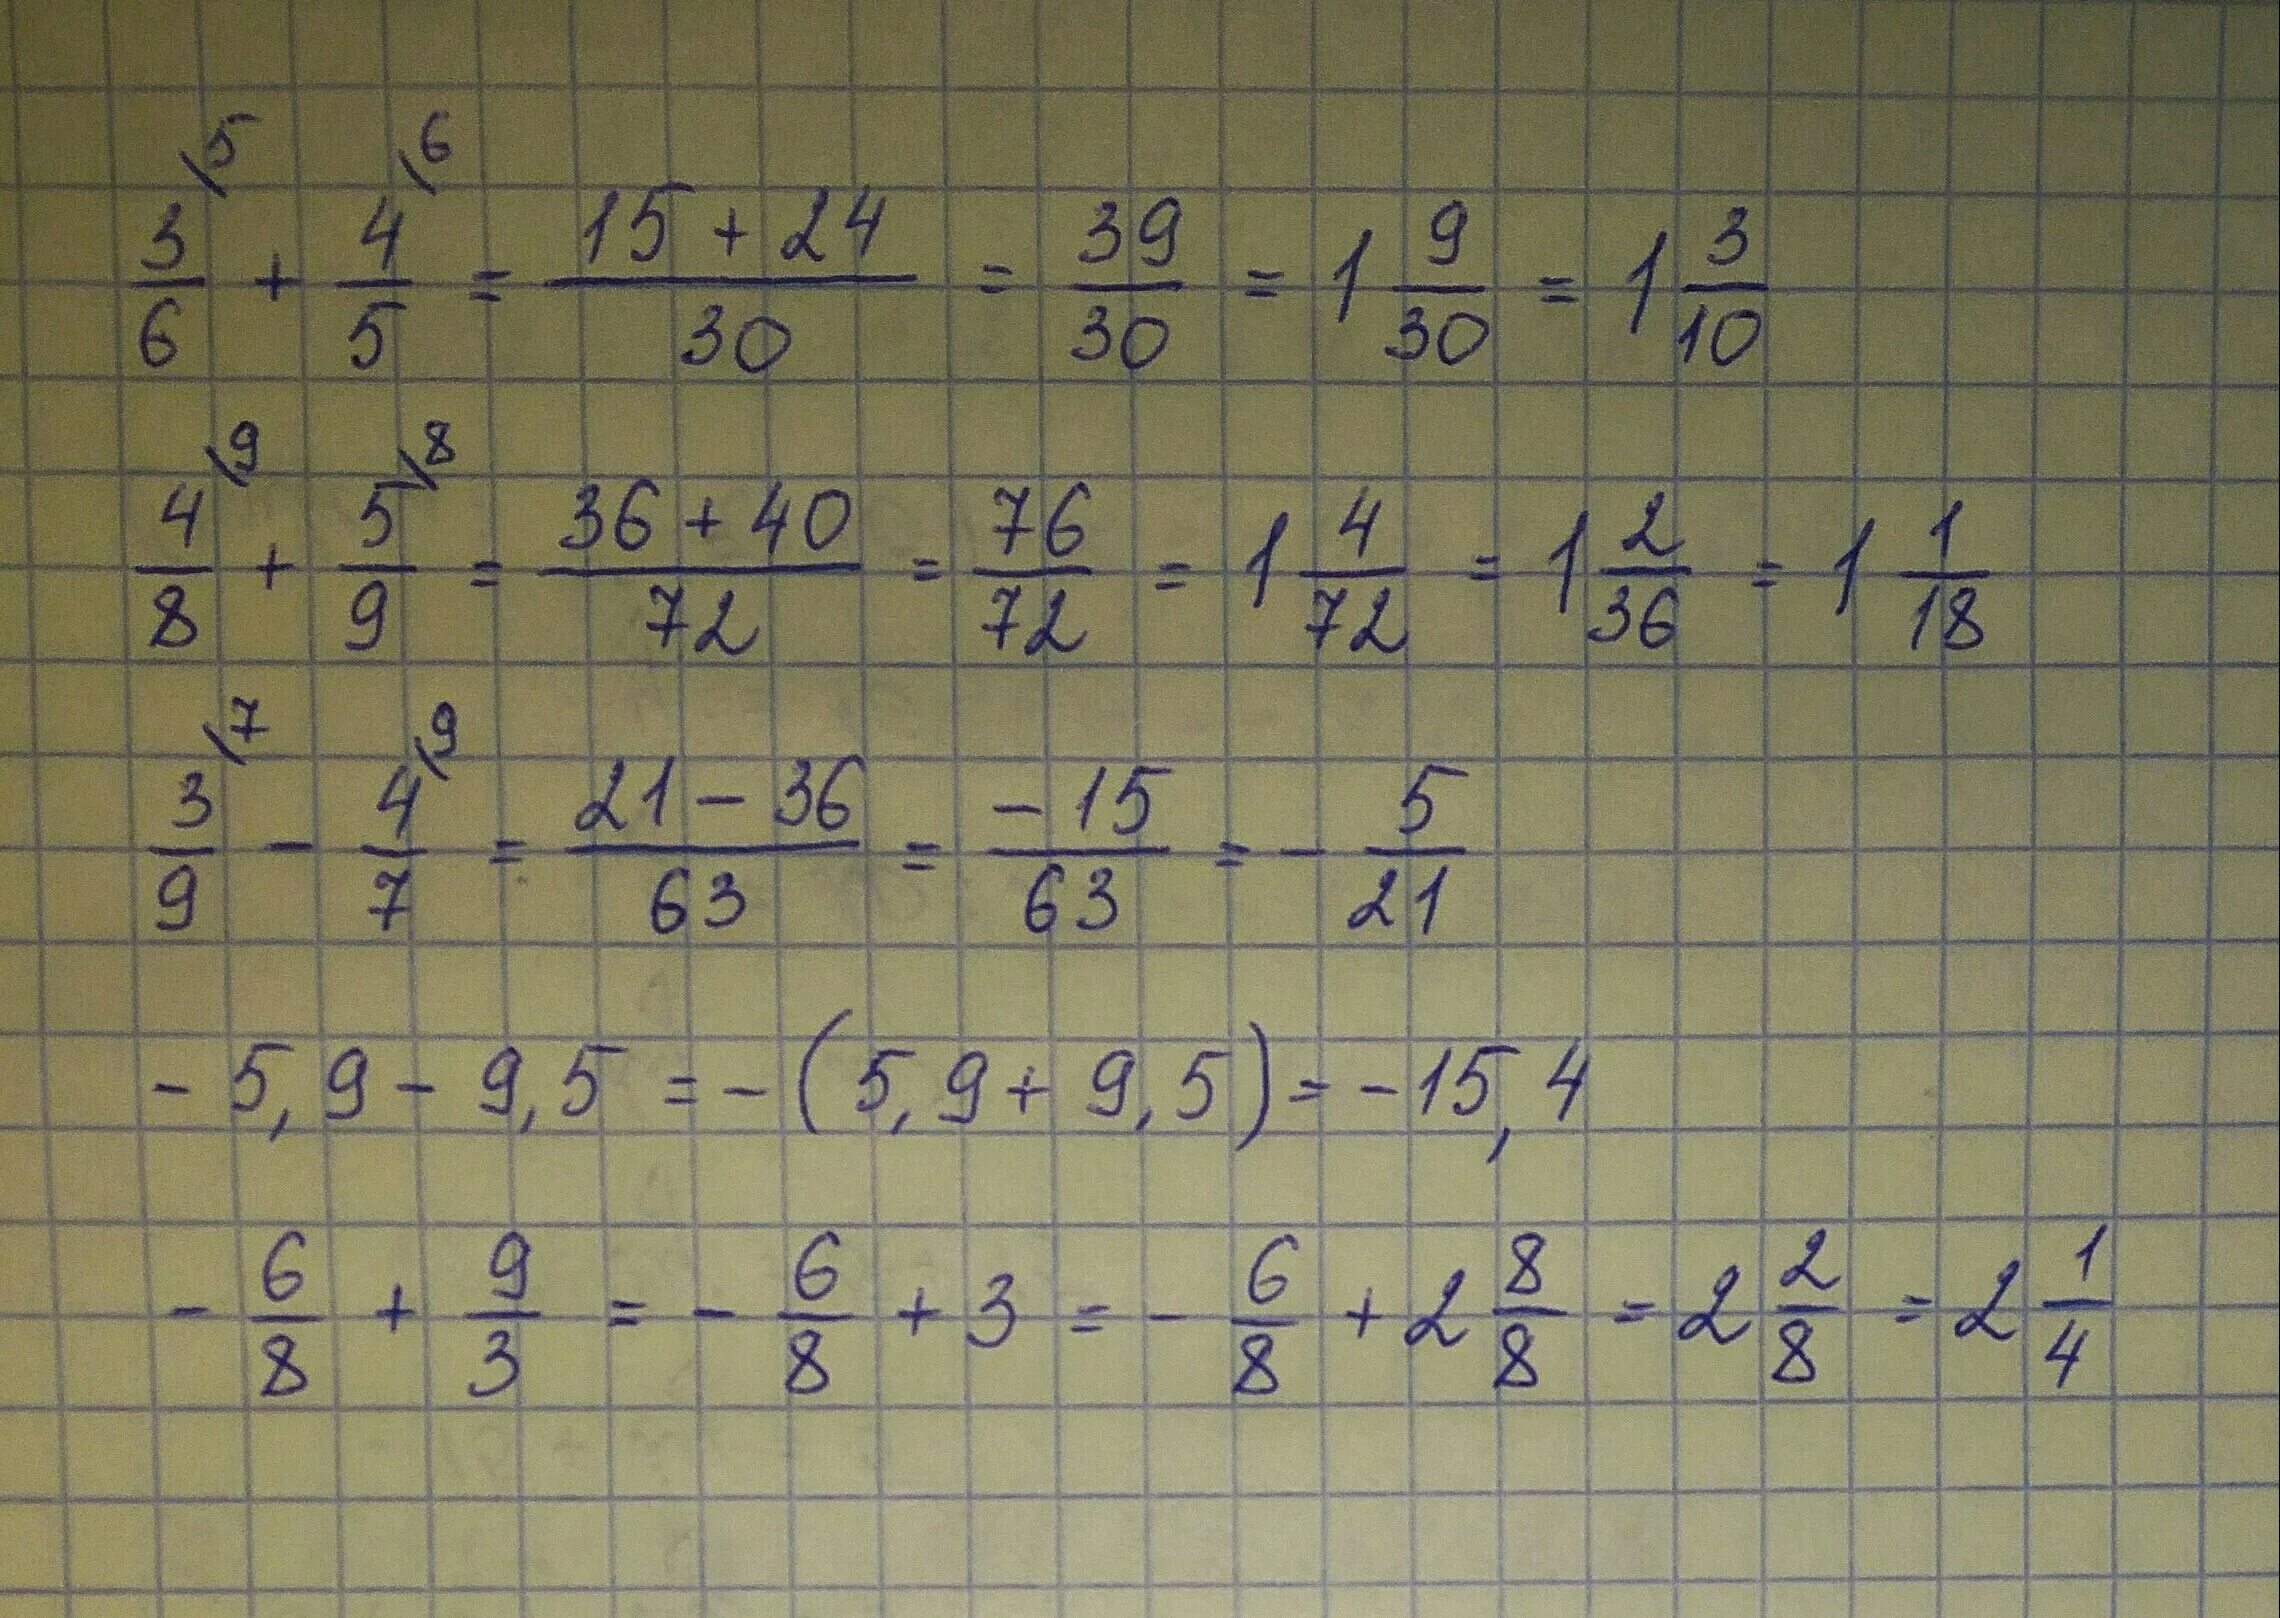 3/6 \5 + 4/5 \6 = (15 + 24)/30 = 39/30 = 1 9/30 = 1 3/10
4/8 \9 + 5/9 \8 = (36 + 40)/72 = 76/72 = 1 4/72 = 1 2/36 = 1 1/18
3/9 \7 - 4/7 \9 = (21 - 36)/63 = -15/63 = - 5/21
- 5,9 - 9,5 = - (5,9 + 9,5) = - 15,4
- 6/8 + 9/3 = - 6/8 + 3 = - 6/8 + 2 8/8 = 2 2/8 = 2 1/4